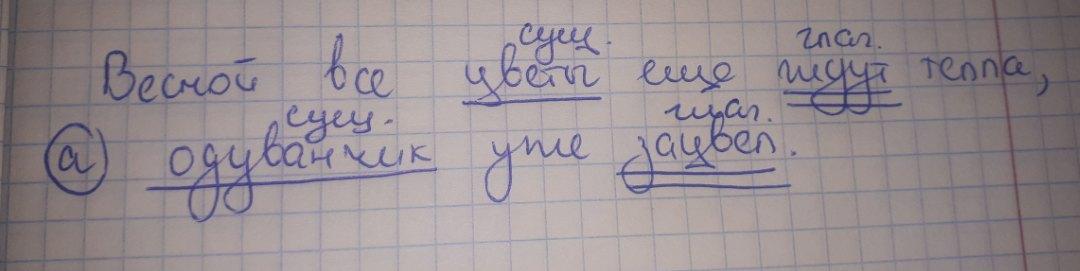 сущ. глаг.
Весной все цветы еще ждут тепла,
сущ. глаг.
а одуванчик уже зацвел.